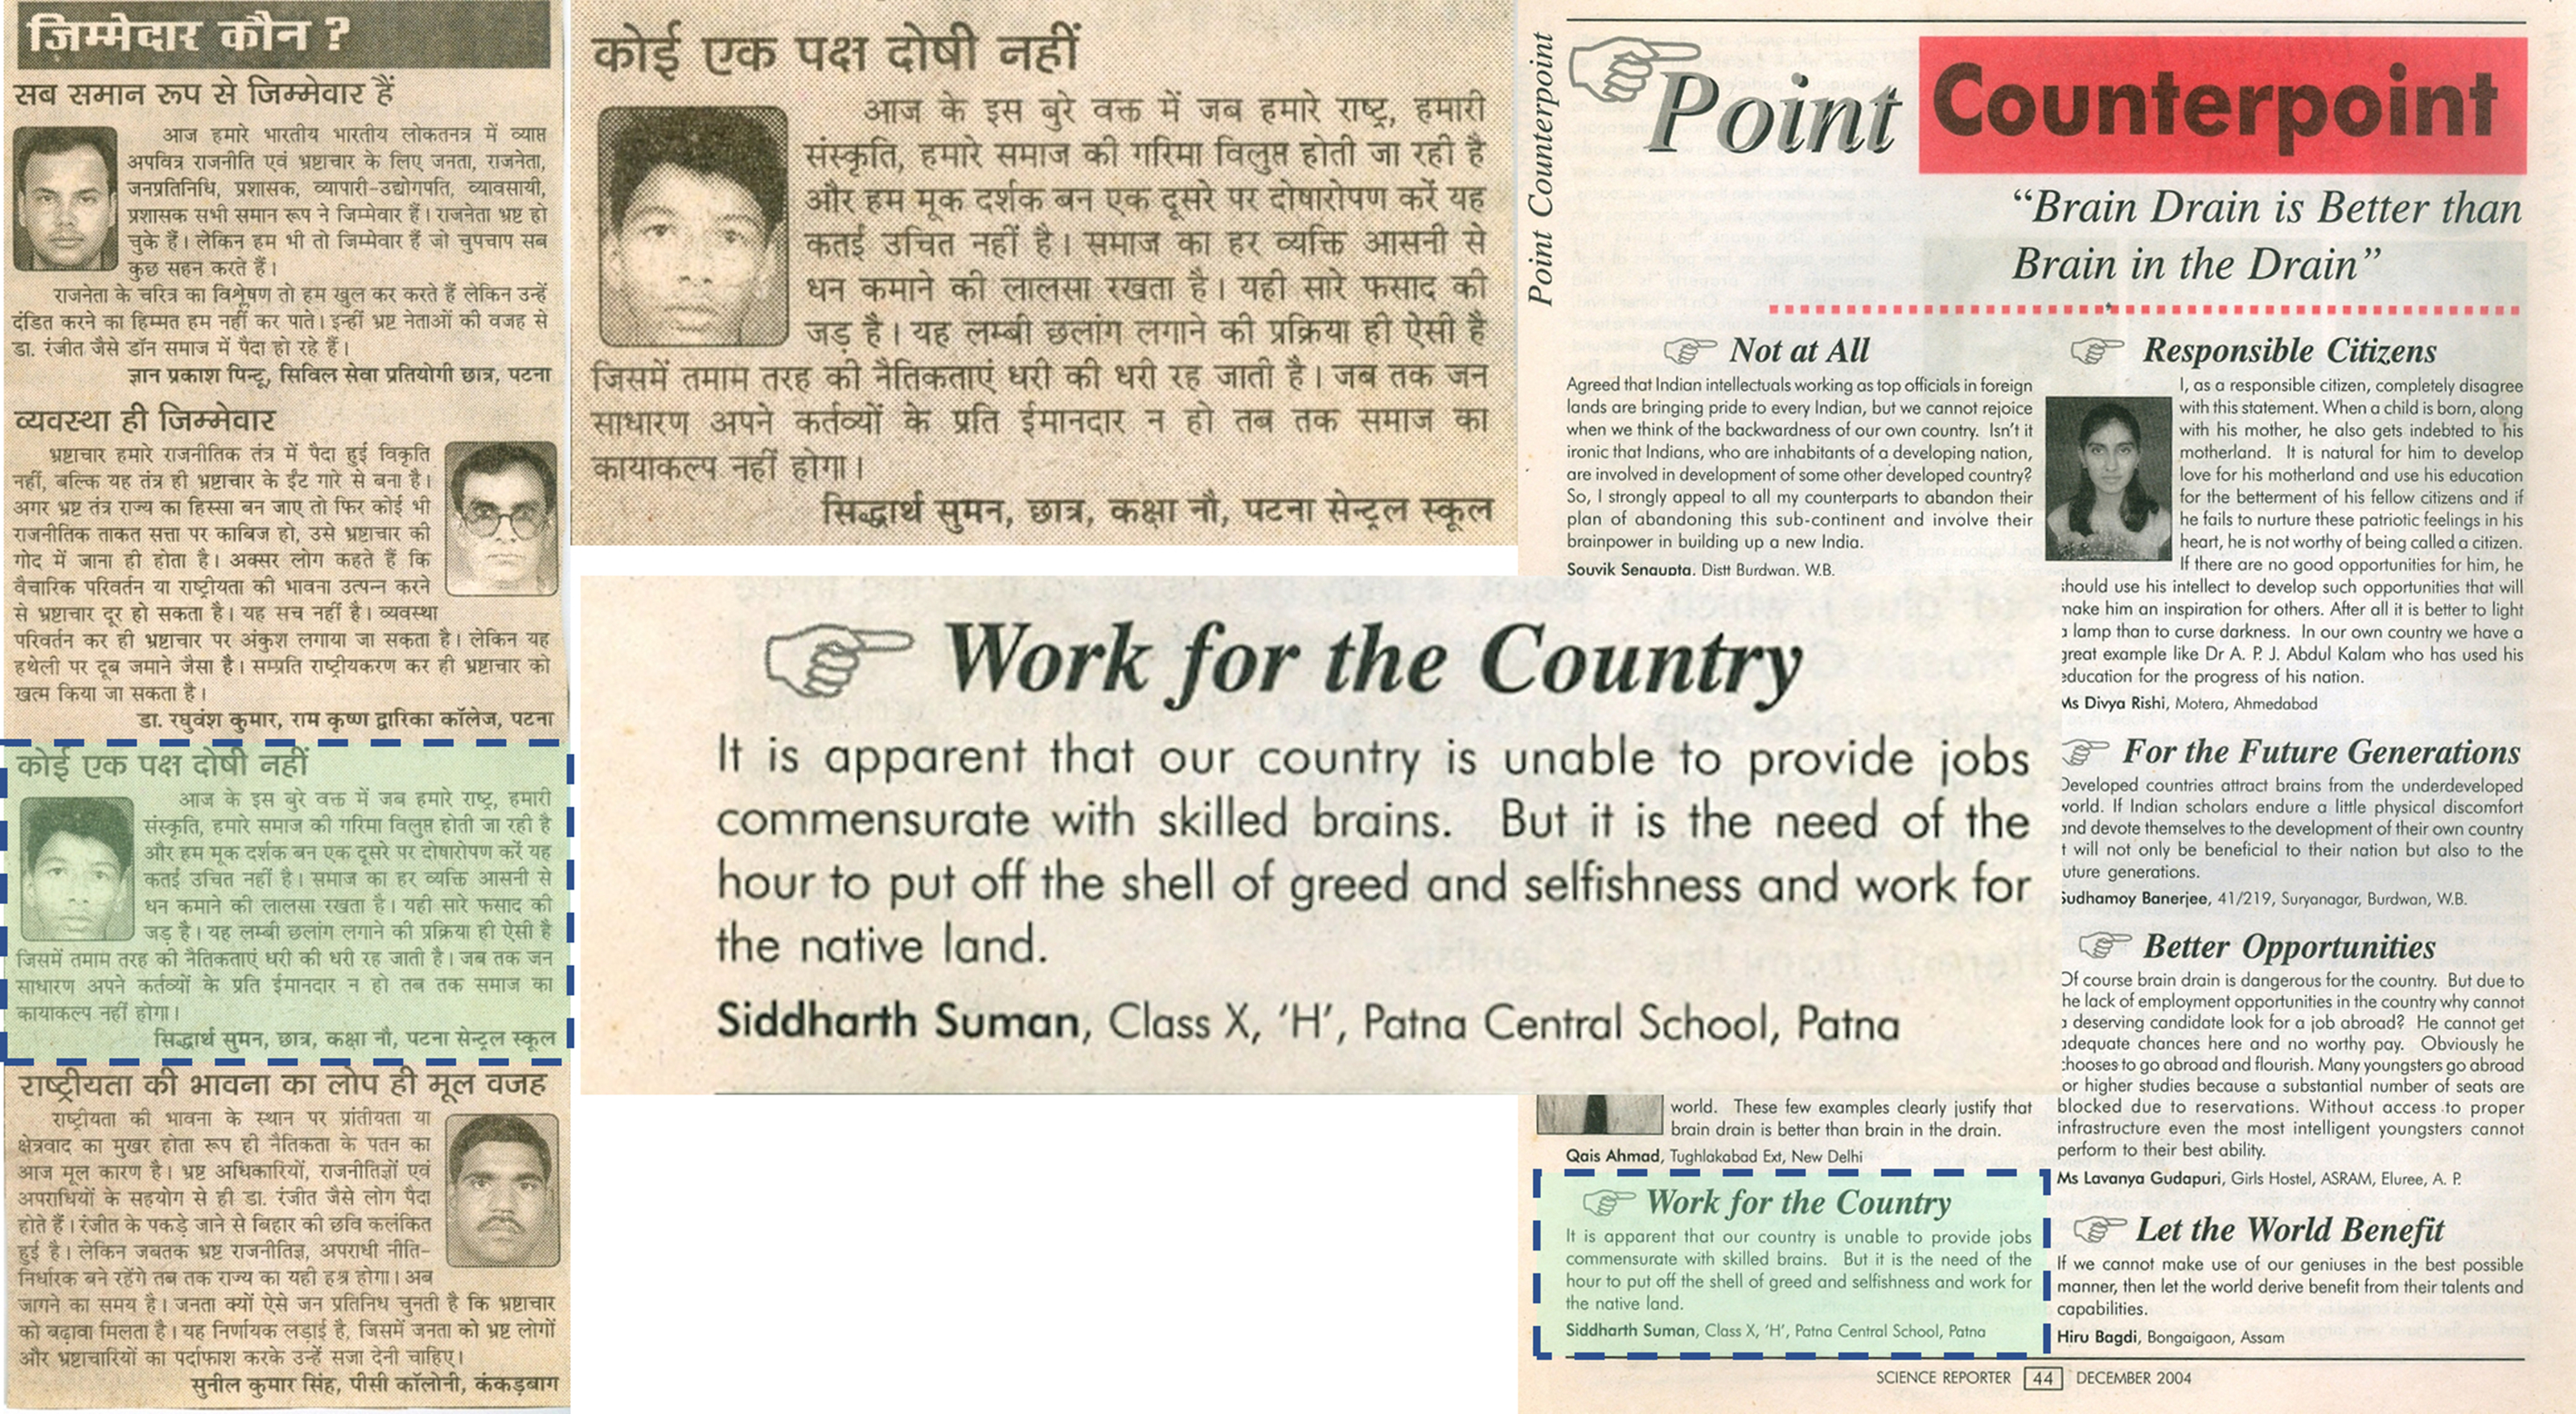 ज़िम्मेदार कौन ?
सब समान रूप से जिम्मेवार हैं
आज हमारे भारतीय भारतीय लोकतनत्र में व्याप्त
अपवित्र राजनीति एवं भ्रष्टाचार के लिए जनता, राजनेता,
जनप्रतिनिधि, प्रशासक, व्यापारी-उद्योगपति, व्यावसायी,
प्रशासक सभी समान रूप ने जिम्मेवार हैं। राजनेता भ्रष्ट हो
चुके हैं। लेकिन हम भी तो जिम्मेवार हैं जो चुपचाप सब
कुछ सहन करते हैं।
राजनेता के चरित्र का विश्लेषण तो हम खुल कर करते हैं लेकिन उन्हें
दंडित करने का हिम्मत हम नहीं कर पाते। इन्हीं भ्रष्ट नेताओं की वजह से
डा. रंजीत जैसे डॉन समाज में पैदा हो रहे हैं।
ज्ञान प्रकाश पिन्टू, सिविल सेवा प्रतियोगी छात्र, पटना
व्यवस्था ही जिम्मेवार
भ्रष्टाचार हमारे राजनीतिक तंत्र में पैदा हुई विकृति
नहीं, बल्कि यह तंत्र ही भ्रष्टाचार के ईंट गारे से बना है।
अगर भ्रष्ट तंत्र राज्य का हिस्सा बन जाए तो फिर कोई भी
राजनीतिक ताकत सत्ता पर काबिज हो, उसे भ्रष्टाचार की
गोद में जाना ही होता है। अक्सर लोग कहते हैं कि
वैचारिक परिवर्तन या राष्ट्रीयता की भावना उत्पन्न करने
से भ्रष्टाचार दूर हो सकता है। यह सच नहीं है। व्यवस्था
परिवर्तन कर ही भ्रष्टाचार पर अंकुश लगाया जा सकता है। लेकिन यह
हथेली पर दूब जमाने जैसा है। सम्प्रति राष्ट्रीयकरण कर ही भ्रष्टाचार को
खत्म किया जा सकता है।
डा. रघुवंश कुमार, राम कृष्ण द्वारिका कॉलेज, पटना
कोई एक पक्ष दोषी नहीं
आज के इस बुरे वक्त में जब हमारे राष्ट्र, हमारी
संस्कृति, हमारे समाज की गरिमा विलुप्त होती जा रही है
और हम मूक दर्शक बन एक दूसरे पर दोषारोपण करें यह
कतई उचित नहीं है। समाज का हर व्यक्ति आसनी से
धन कमाने की लालसा रखता है। यही सारे फसाद की
जड़ है। यह लम्बी छलांग लगाने की प्रक्रिया ही ऐसी है
जिसमें तमाम तरह की नैतिकताएं धरी की धरी रह जाती है। जब तक जन
साधारण अपने कर्तव्यों के प्रति ईमानदार न हो तब तक समाज का
कायाकल्प नहीं होगा।
सिद्धार्थ सुमन, छात्र, कक्षा नौ, पटना सेन्ट्रल स्कूल
राष्ट्रीयता की भावना का लोप ही मूल वजह
राष्ट्रीयता की भावना के स्थान पर प्रांतीयता या
क्षेत्रवाद का मुखर होता रूप ही नैतिकता के पतन का
आज मूल कारण है। भ्रष्ट अधिकारियों, राजनीतिज्ञों एवं
अपराधियों के सहयोग से ही डा. रंजीत जैसे लोग पैदा
होते हैं। रंजीत के पकड़े जाने से बिहार की छवि कलंकित
हुई है। लेकिन जबतक भ्रष्ट राजनीतिज्ञ, अपराधी नीति-
निर्धारक बने रहेंगे तब तक राज्य का यही हश्र होगा। अब
जागने का समय है। जनता क्यों ऐसे जन प्रतिनिध चुनती है कि भ्रष्टाचार
को बढ़ावा मिलता है। यह निर्णायक लड़ाई है, जिसमें जनता को भ्रष्ट लोगों
और भ्रष्टाचारियों का पर्दाफाश करके उन्हें सजा देनी चाहिए।
सुनील कुमार सिंह, पीसी कॉलोनी, कंकड़बाग
कोई एक पक्ष दोषी नहीं
आज के इस बुरे वक्त में जब हमारे राष्ट्र, हमारी
संस्कृति, हमारे समाज की गरिमा विलुप्त होती जा रही है
और हम मूक दर्शक बन एक दूसरे पर दोषारोपण करें यह
कतई उचित नहीं है। समाज का हर व्यक्ति आसनी से
धन कमाने की लालसा रखता है। यही सारे फसाद की
जड़ है। यह लम्बी छलांग लगाने की प्रक्रिया ही ऐसी है
जिसमें तमाम तरह की नैतिकताएं धरी की धरी रह जाती है। जब तक जन
साधारण अपने कर्तव्यों के प्रति ईमानदार न हो तब तक समाज का
कायाकल्प नहीं होगा।
सिद्धार्थ सुमन, छात्र, कक्षा नौ, पटना सेन्ट्रल स्कूल
Work for the Country
It is apparent that our country is unable to provide jobs
commensurate with skilled brains. But it is the need of the
hour to put off the shell of greed and selfishness and work for
the native land.
Siddharth Suman, Class X, 'H', Patna Central School, Patna
Point Counterpoint
Point Counterpoint
"Brain Drain is Better than
Brain in the Drain"
Not at All
Agreed that Indian intellectuals working as top officials in foreign
lands are bringing pride to every Indian, but we cannot rejoice
when we think of the backwardness of our own country. Isn't it
ironic that Indians, who are inhabitants of a developing nation,
are involved in development of some other developed country?
So, I strongly appeal to all my counterparts to abandon their
plan of abandoning this sub-continent and involve their
brainpower in building up a new India.
Souvik Sengupta, Distt Burdwan, W.B.
world. These few examples clearly justify that
brain drain is better than brain in the drain.
Qais Ahmad, Tughlakabad Ext, New Delhi
Work for the Country
It is apparent that our country is unable to provide jobs
commensurate with skilled brains. But it is the need of the
hour to put off the shell of greed and selfishness and work for
the native land.
Siddharth Suman, Class X, 'H', Patna Central School, Patna
Responsible Citizens
I, as a responsible citizen, completely disagree
with this statement. When a child is born, along
with his mother, he also gets indebted to his
motherland. It is natural for him to develop
love for his motherland and use his education
for the betterment of his fellow citizens and if
he fails to nurture these patriotic feelings in his
heart, he is not worthy of being called a citizen.
If there are no good opportunities for him, he
should use his intellect to develop such opportunities that will
make him an inspiration for others. After all it is better to light
a lamp than to curse darkness. In our own country we have a
great example like Dr A. P. J. Abdul Kalam who has used his
education for the progress of his nation.
Ms Divya Rishi, Motera, Ahmedabad
For the Future Generations
Developed countries attract brains from the underdeveloped
world. If Indian scholars endure a little physical discomfort
and devote themselves to the development of their own country
it will not only be beneficial to their nation but also to the
future generations.
Sudhamoy Banerjee, 41/219, Suryanagar, Burdwan, W.B.
Better Opportunities
Of course brain drain is dangerous for the country. But due to
the lack of employment opportunities in the country why cannot
a deserving candidate look for a job abroad? He cannot get
adequate chances here and no worthy pay. Obviously he
chooses to go abroad and flourish. Many youngsters go abroad
for higher studies because a substantial number of seats are
blocked due to reservations. Without access to proper
infrastructure even the most intelligent youngsters cannot
perform to their best ability.
Ms Lavanya Gudapuri, Girls Hostel, ASRAM, Eluree, A. P.
Let the World Benefit
If we cannot make use of our geniuses in the best possible
manner, then let the world derive benefit from their talents and
capabilities.
Hiru Bagdi, Bongaigaon, Assam
SCIENCE REPORTER 44 DECEMBER 2004